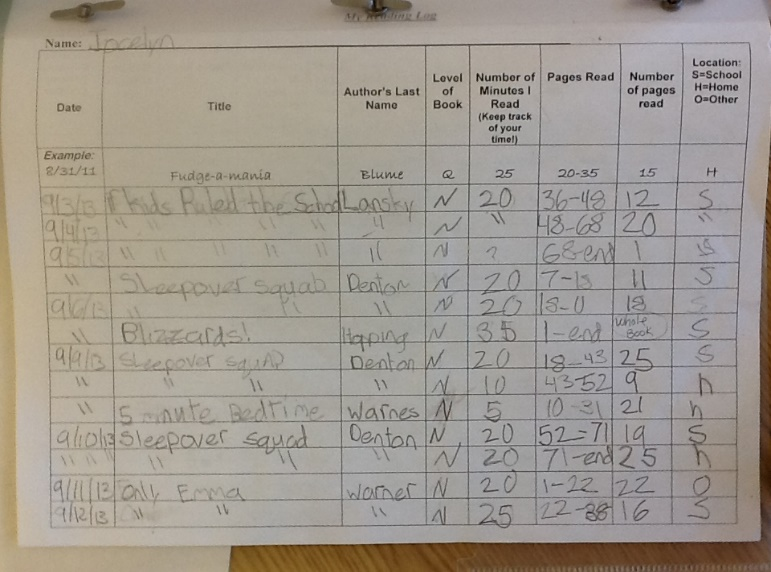 My Reading Log
Name: Jocelyn
Date Title Author's Last Name Level of Book Number of Minutes I Read (Keep track of your time!) Pages Read Number of pages read Location: S=School H=Home O=Other
Example: 8/31/11 Fudge-a-mania Blume Q 25 20-35 15 H
9/3/13 If kids Ruled the School Lansky N 20 36-48 12 S
9/4/13 " " " " " " N " 48-68 20 "
9/5/13 " " " " " " N ? 68-end 1 S
" Sleepover squab Denton N 20 7-18 11 S
9/6/13 " " " N 20 18-0 18 S
" Blizzards! Hopping N 35 1-end Whole Book S
9/9/13 Sleepover squad Denton N 20 18-43 25 S
" " " " N 10 43-52 9 h
" 5 minute Bedtime Warnes N 5 10-31 21 h
9/10/13 Sleepover squad Denton N 20 52-71 19 S
" " " " " " N 20 71-end 25 h
9/11/13 Only Emma Warner N 20 1-22 22 O
9/12/13 " " " N 25 22-38 16 S